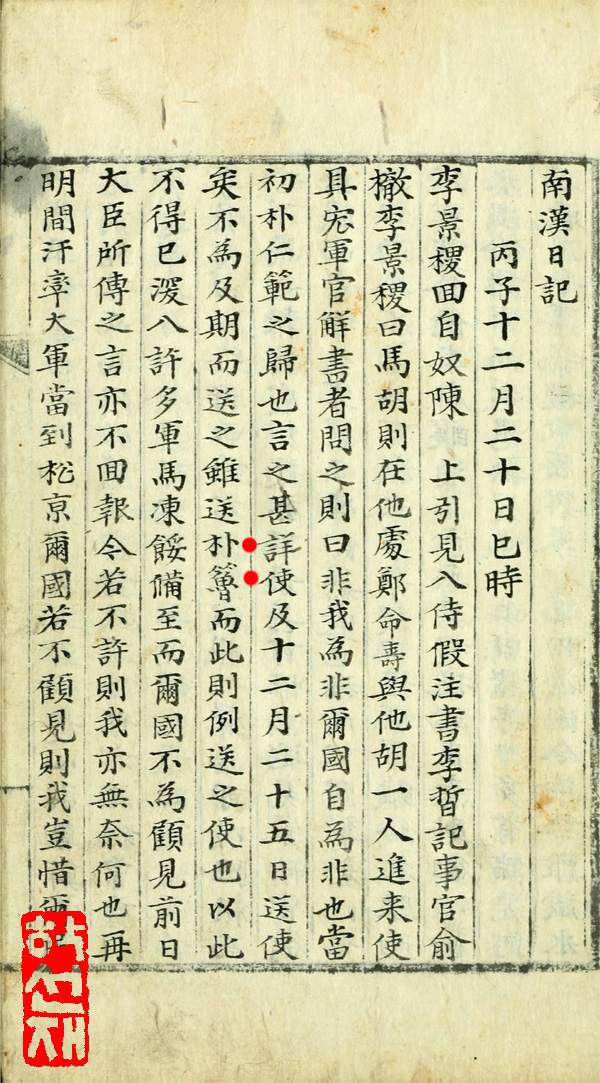 南漢日記
丙子十二月二十日巳時
李景稷囬自奴陳 上引見入侍假注書李晢記事官俞
撤李景稷曰馬胡則在他處鄭命壽與他胡一人進来使
具宏軍官觧書者問之則曰非我為非爾國自為非也當
初朴仁範之歸也言之甚詳使及十二月二十五日送使
矣不為及期而送之雖送朴𥶇而此則例送之使也以此
不得已深入許多軍馬凍餒備至而爾國不為顧見前日
大臣所傳之言亦不囬報今若不許則我亦無奈何也再
明間汗率大軍當到松京爾國若不顧見則我豈惜